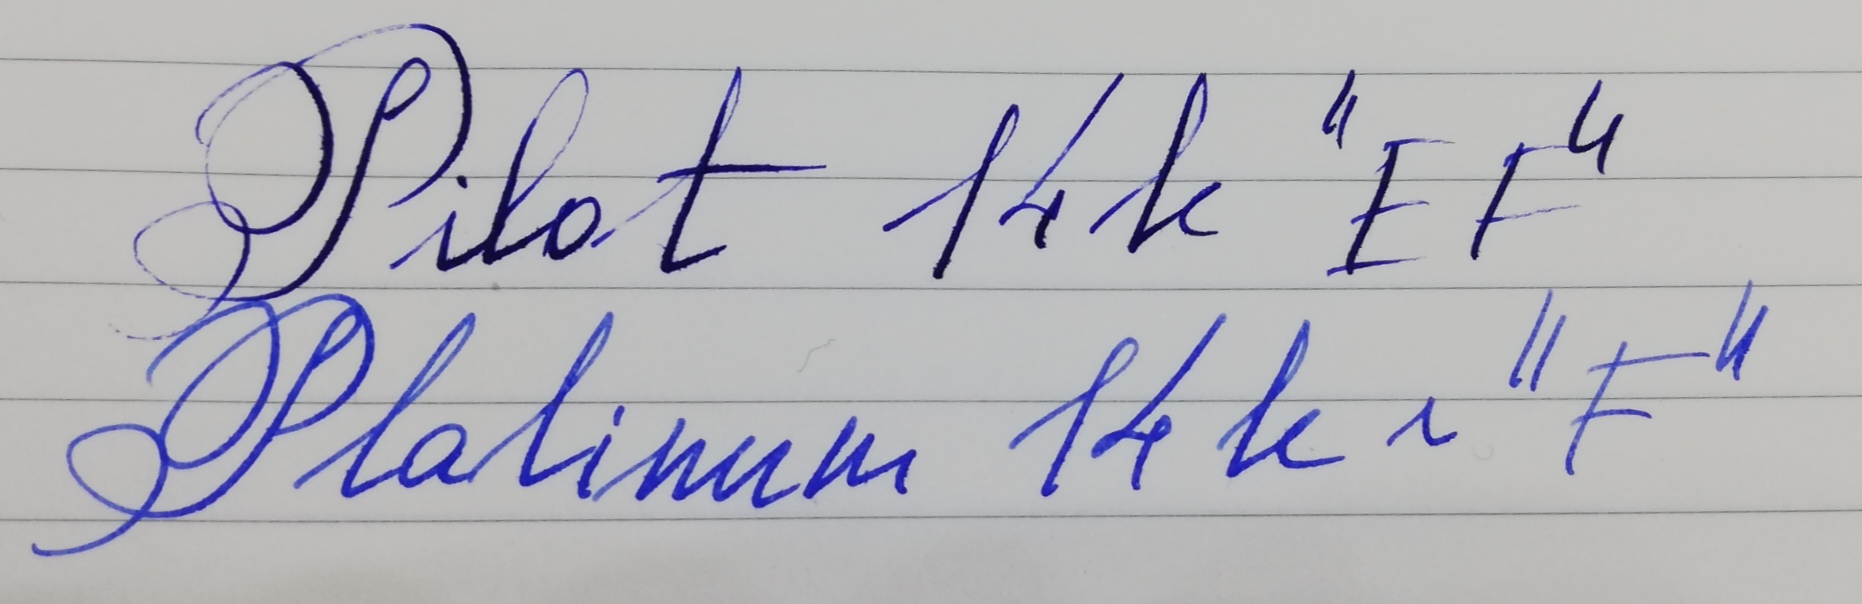 Pilot 14k "EF"
Platinum 14k "F"